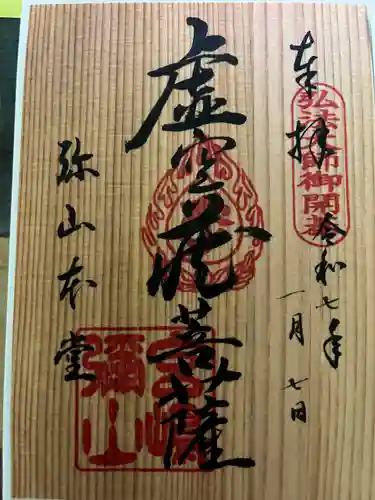 奉拝
弘法大師御開基
令和七年
一月七日
虚空蔵菩薩
弥山本堂
彌山